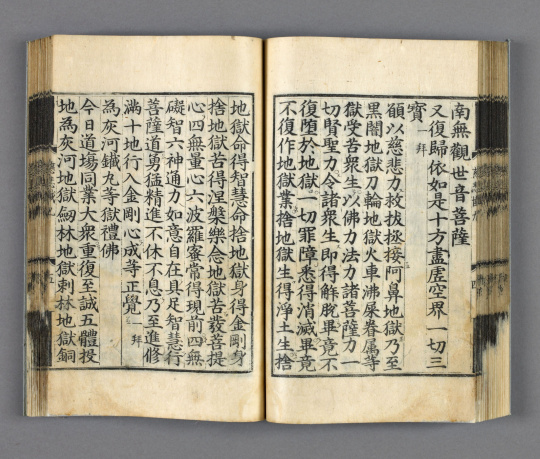 南無觀世音菩薩
又復歸依如是十方盡虛空界一切三
寶 拜
願以慈悲力救拔拯接阿鼻地獄乃至
黑闇地獄刀輪地獄火車沸屎眷屬等
獄受苦衆生以佛力法力諸菩薩力一
切賢聖力令諸衆生即得解脫畢竟不
復墮於地獄一切罪障悉得消滅畢竟
不復作地獄業捨地獄生得淨土生捨
地獄命得智慧命捨地獄身得金剛身
捨地獄苦得涅槃樂念地獄苦發菩提
心四無量心六波羅蜜常得現前四無
礙智六神通力如意自在具足智慧行
菩薩道勇猛精進不休不息乃至進修
滿十地行入金剛心成等正覺 拜
為灰河鐵丸等獄禮佛
今日道場同業大衆重復至誠五體投
地為灰河地獄劒林地獄刺林地獄銅